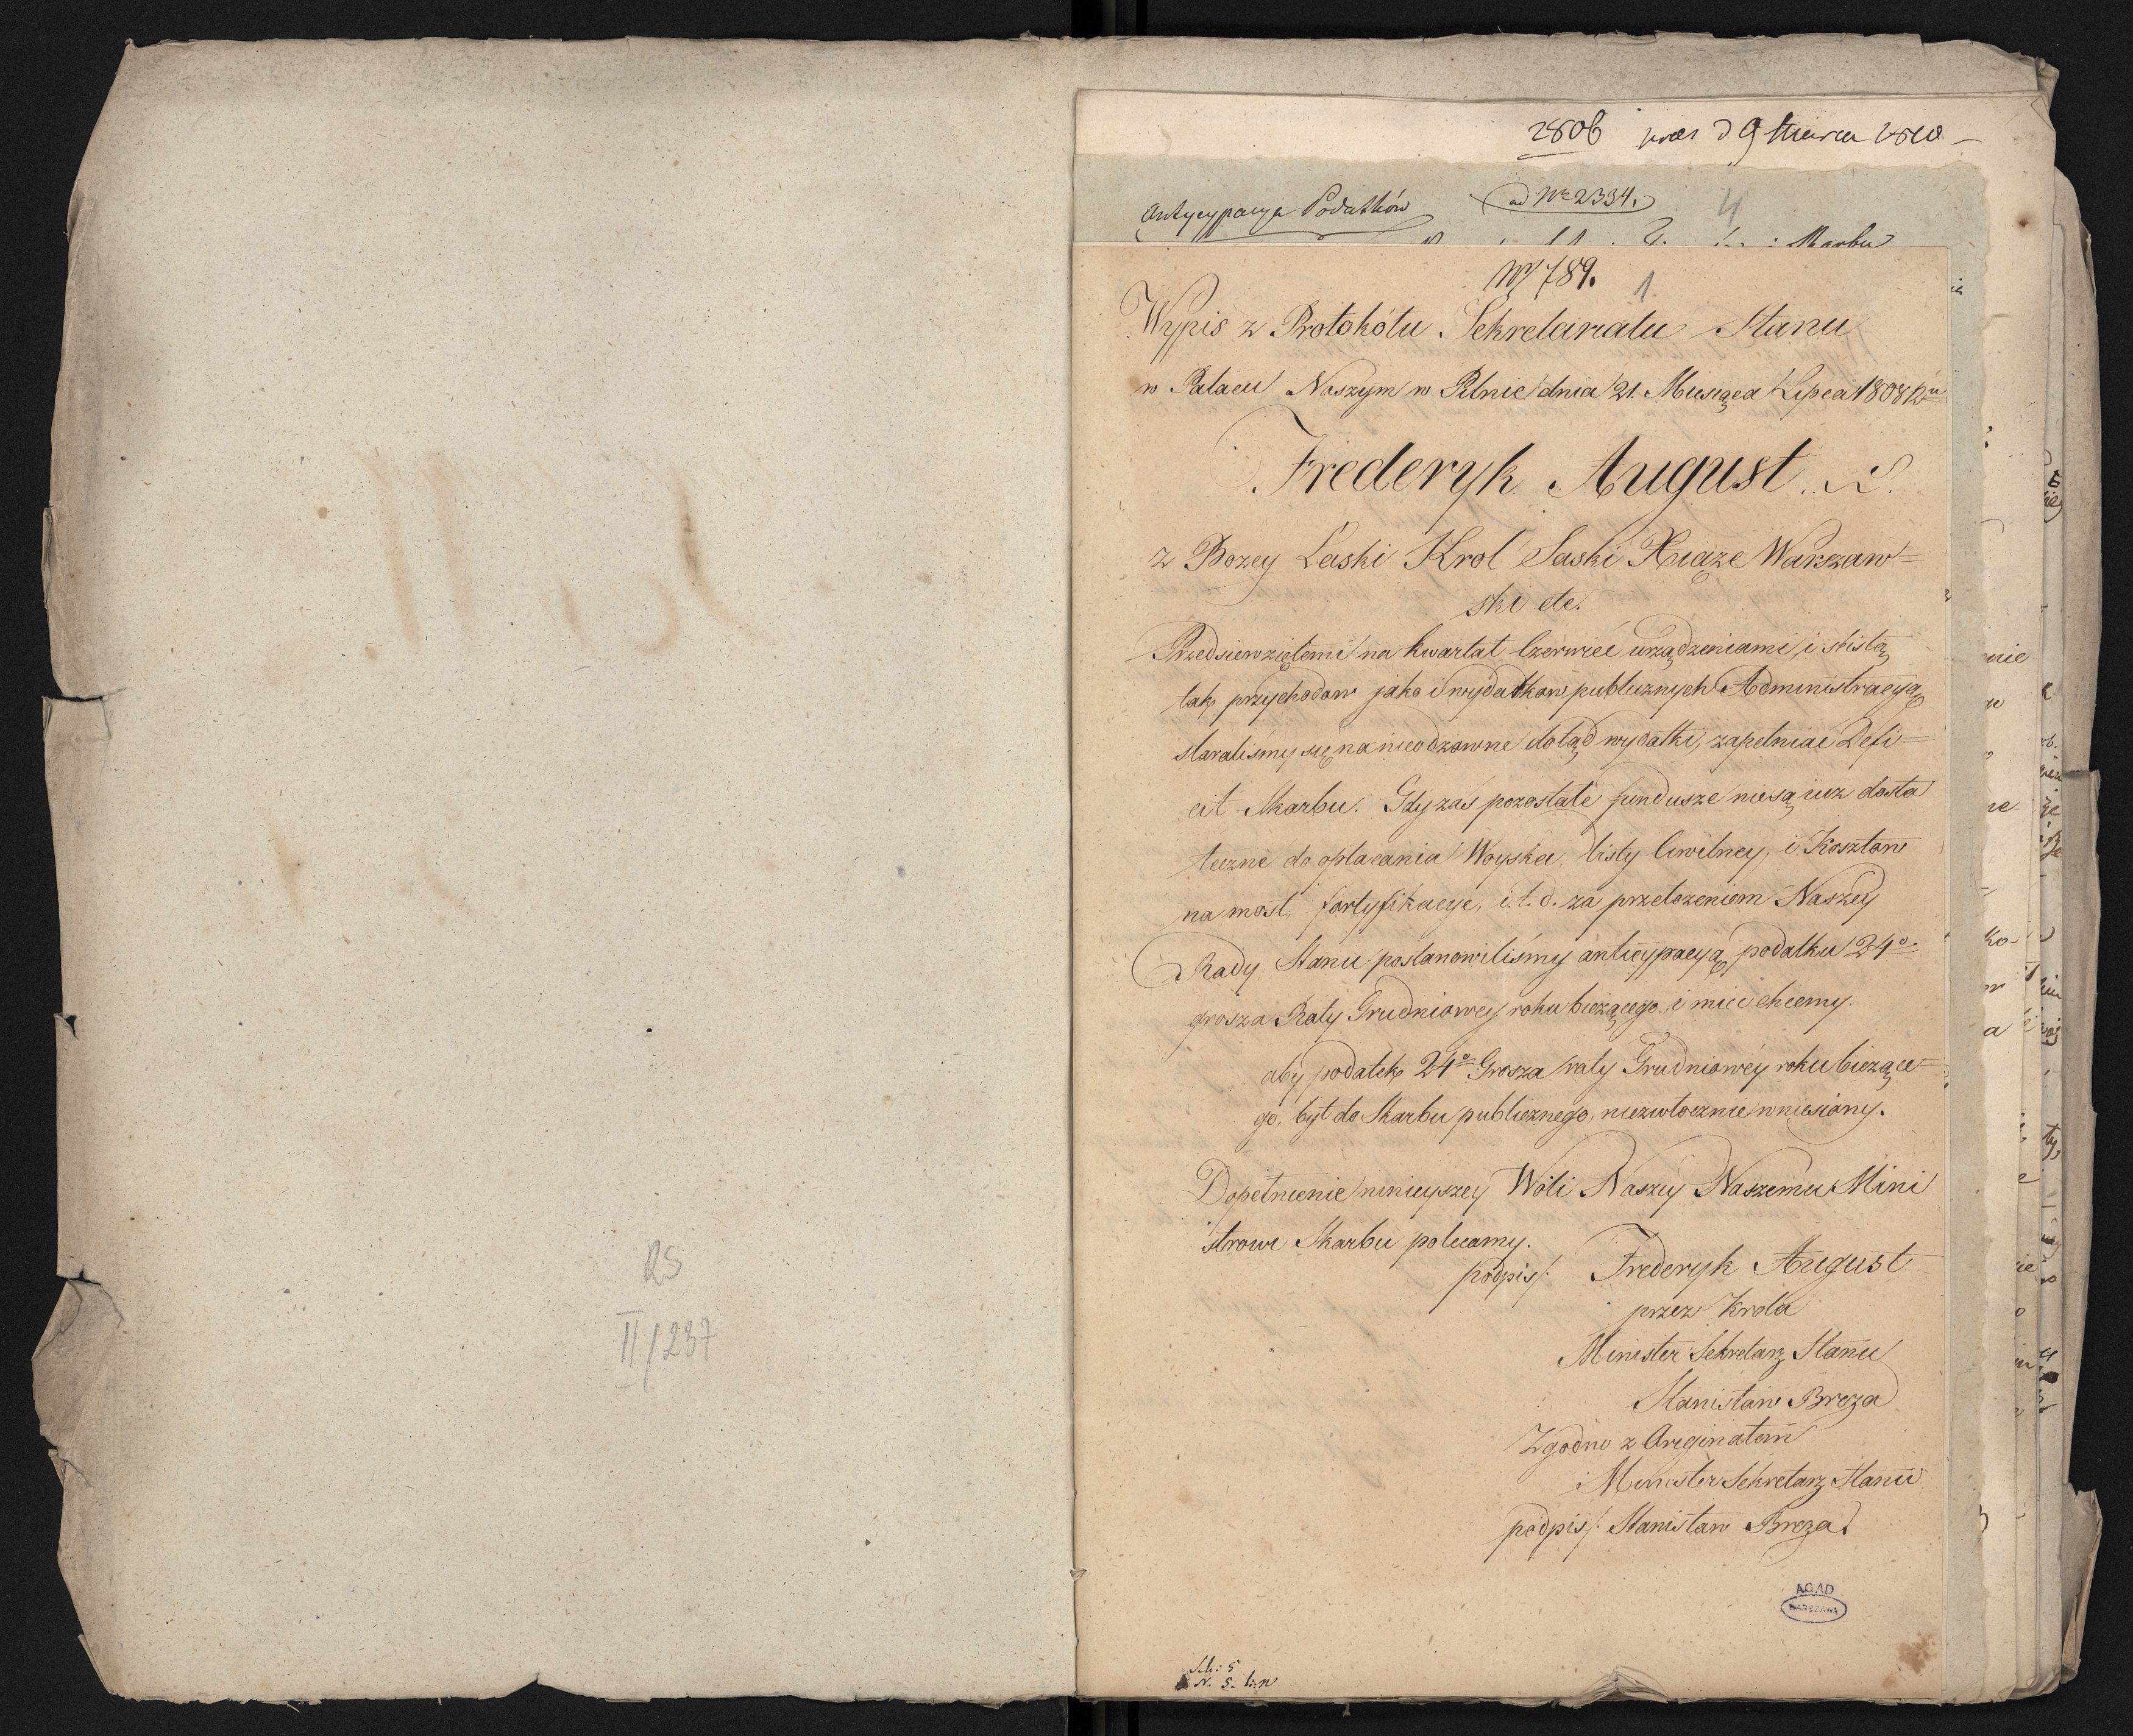 RS
II/237
2806 pras d 9 Marca 1810
Antycypacya Podatków
ad Nr 2334.
4
Skarbu
Nr 789.
1.
Wypis z Protokółu Sekretariatu Stanu
w Pałacu Naszym w Pilnic dnia 21. Miesiąca Lipca 1808 Ru
Frederyk August
z Bozey Łaski Krol Saski Xiąze Warszaw=
ski etc.
Przedsiewziętemi na kwartał Czerwiec urządzeniami, i scisłą
tak przychodow jako i wydatkow publicznych Administracyą
staraliśmy się na nieodzowne dotąd wydatki, zapełniac Defi=
cit Skarbu. Gdy zaś pozostałe fundusze niesą iuz dosta
teczne do opłacania Woyska, listy Cywilney, i Kosztow
na most, fortyfikacye, i.t.d. za przełozeniem Naszey
Rady Stanu postanowiliśmy anticypacyą podatku 24o
grosza Raty Grudniowey roku biezącego, i miec chcemy.
aby podatek 24o Grosza raty Grudniowéy roku biezące=
go, był do Skarbu publicznego, niezwłocznie wniesiony.
Dopełnienie ninieyszey Woli Naszey Naszemu Mini
strowi Skarbu polecamy.
podpis/: Frederyk August
przez Krola
Minister Sekretarz Stanu
Stanisław Breza
Zgodno z Originałem
Minister Sekretarz Stanu
podpis/: Stanisław Breza.
AGAD
WARSZAWA
N. 5.